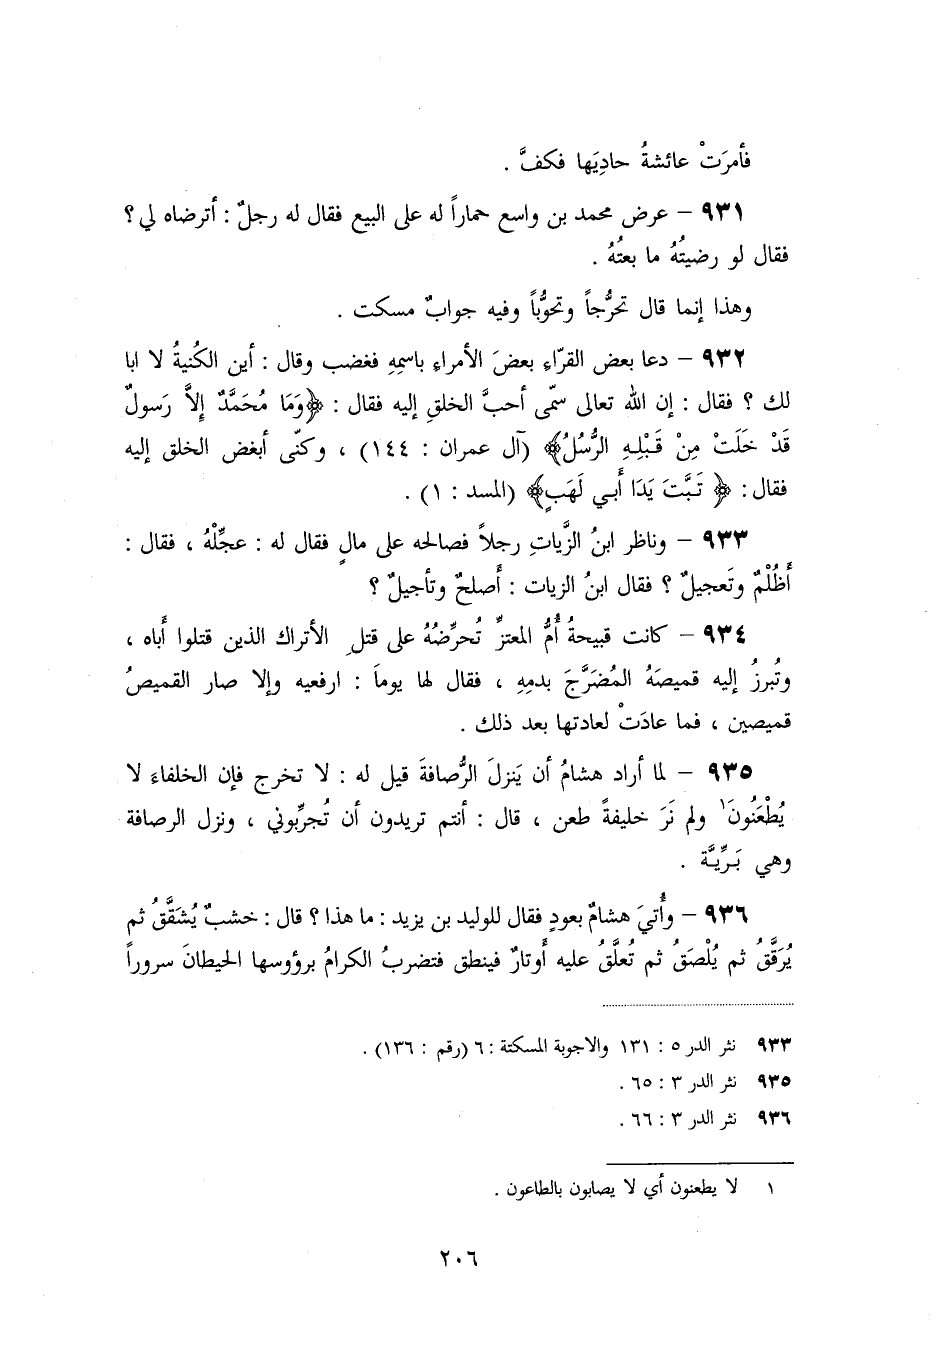 فأمرَتْ عائشةُ حادِيَها فكفَّ .
٩٣١ – عرض محمد بن واسع حماراً له على البيع فقال له رجلٌ : أترضاه لي ؟
فقال لو رضيتُهُ ما بعتُهُ .
وهذا إنما قال تحرُّجاً وتحوُّباً وفيه جوابٌ مسكت .
٩٣٢ – دعا بعض القرّاءِ بعضَ الأمراءِ باسمِهِ فغضب وقال : أين الكُنيةُ لا ابا
لك ؟ فقال : إن الله تعالى سمّى أحبَّ الخلقِ إليه فقال : ﴿وَمَا مُحَمَّدٌ إلاَّ رَسولٌ
قَدْ خَلَتْ مِنْ قَبْلِهِ الرُّسُلُ﴾ (آل عمران : ١٤٤) ، وكنّى أبغض الخلق إليه
فقال : ﴿ تَبَّتَ يَدَا أَبي لَهَبٍ﴾ (المسد : ١) .
٩٣٣ – وناظر ابنُ الزَّياتِ رجلاً فصالحه على مالٍ فقال له : عجِّلْهُ ، فقال :
أَظُلْمٌ وتَعجيلٌ ؟ فقال ابنُ الزيات : أَصلحٌ وتأجيلٌ ؟
٩٣٤ – كانت قبيحةُ أُمُّ المعتزِّ تُحرِّضُهُ على قتلِ الأتراك الذين قتلوا أَباه ،
وتُبرزُ إليه قميصَهُ المُضَرَّجَ بدمِهِ ، فقال لها يوماً : ارفعيه وإلا صار القميصُ
قميصين ، فما عادَتْ لعادتها بعد ذلك .
٩٣٥ – لما أراد هشامُ أن يَنزلَ الرُّصافةَ قيل له : لا تخرج فإن الخلفاءَ لا
يُطْعَنُونَ١ ولم نَرَ خليفةً طعن ، قال : أنتم تريدون أن تُجرِّبوني ، ونزل الرصافة
وهي بَرِّيَّة .
٩٣٦ – وأُتيَ هشامٌ بعودٍ فقال للوليد بن يزيد : ما هذا ؟ قال : خشبٌ يُشَقَّقُ ثم
يُرَقَّقُ ثم يُلْصَقُ ثم تُعلَّقُ عليه أَوتارٌ فينطق فتضربُ الكرامُ برؤوسها الحيطانَ سروراً
٩٣٣ نثر الدر ٥ : ١٣١ والاجوبة المسكتة : ٦ (رقم : ١٣٦) .
٩٣٥ نثر الدر ٣ : ٦٥ .
٩٣٦ نثر الدر ٣ : ٦٦ .
١ لا يطعنون أي لا يصابون بالطاعون .
٢٠٦